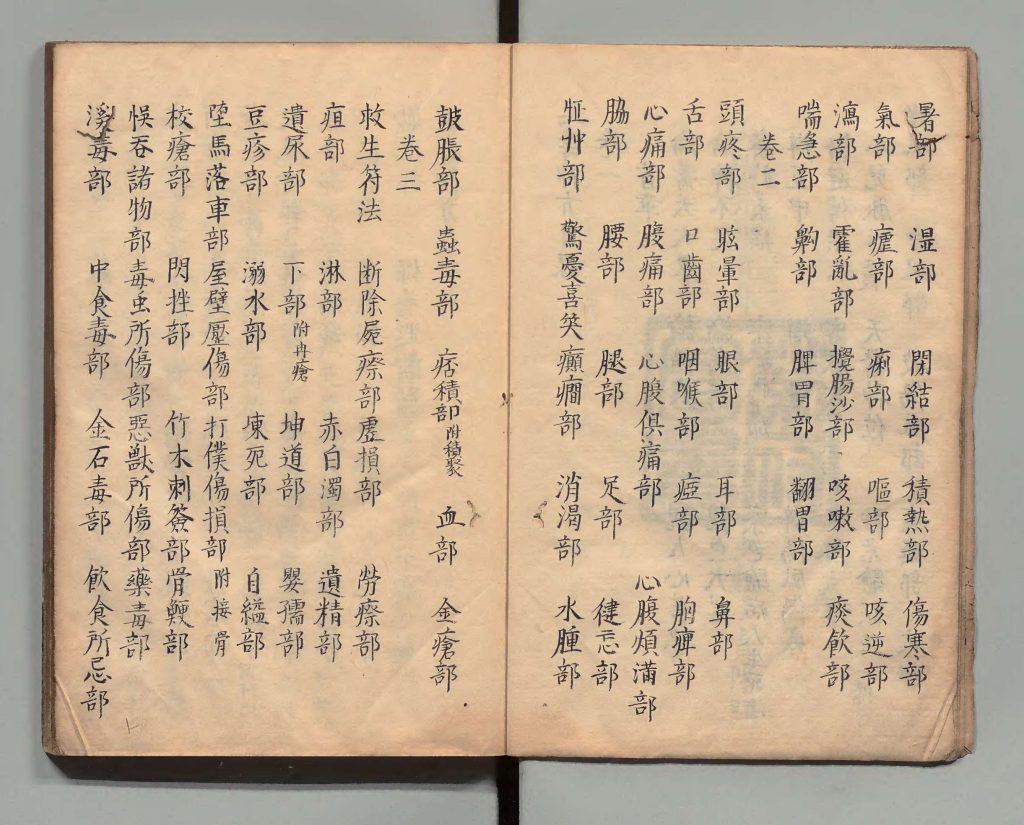 暑部 湿部 閉結部 積熱部 傷寒部
氣部 瘧部 痢部 嘔部 咳逆部
瀉部 霍亂部 攪腸沙部 咳嗽部 痰飲部
喘急部 齁部 脾胃部 翻胃部
卷二
頭疼部 眩暈部 眼部 耳部 鼻部
舌部 口齒部 咽喉部 瘂部 胸痺部
心痛部 腹痛部 心腹俱痛部 心腹煩滿部
脇部 腰部 腿部 足部 健忘部
怔忡部 驚憂喜笑 癲癇部 消渴部 水腫部
皷脹部 蟲毒部 痞積部附積聚 血部 金瘡部
卷三
救生符法 断除屍瘵部 虛損部 勞瘵部
疸部 淋部 赤白濁部 遺精部
遺尿部 下部附冉瘡 坤道部 嬰孺部
豆疹部 溺水部 凍死部 自縊部
墮馬落車部 屋壁壓傷部 打僕傷損部附接骨
杖瘡部 閃挫部 竹木刺簽部 骨鯁部
悞吞諸物部 毒虫所傷部 惡獸所傷部 藥毒部
毒部 中食毒部 金石毒部 飲食所忌部